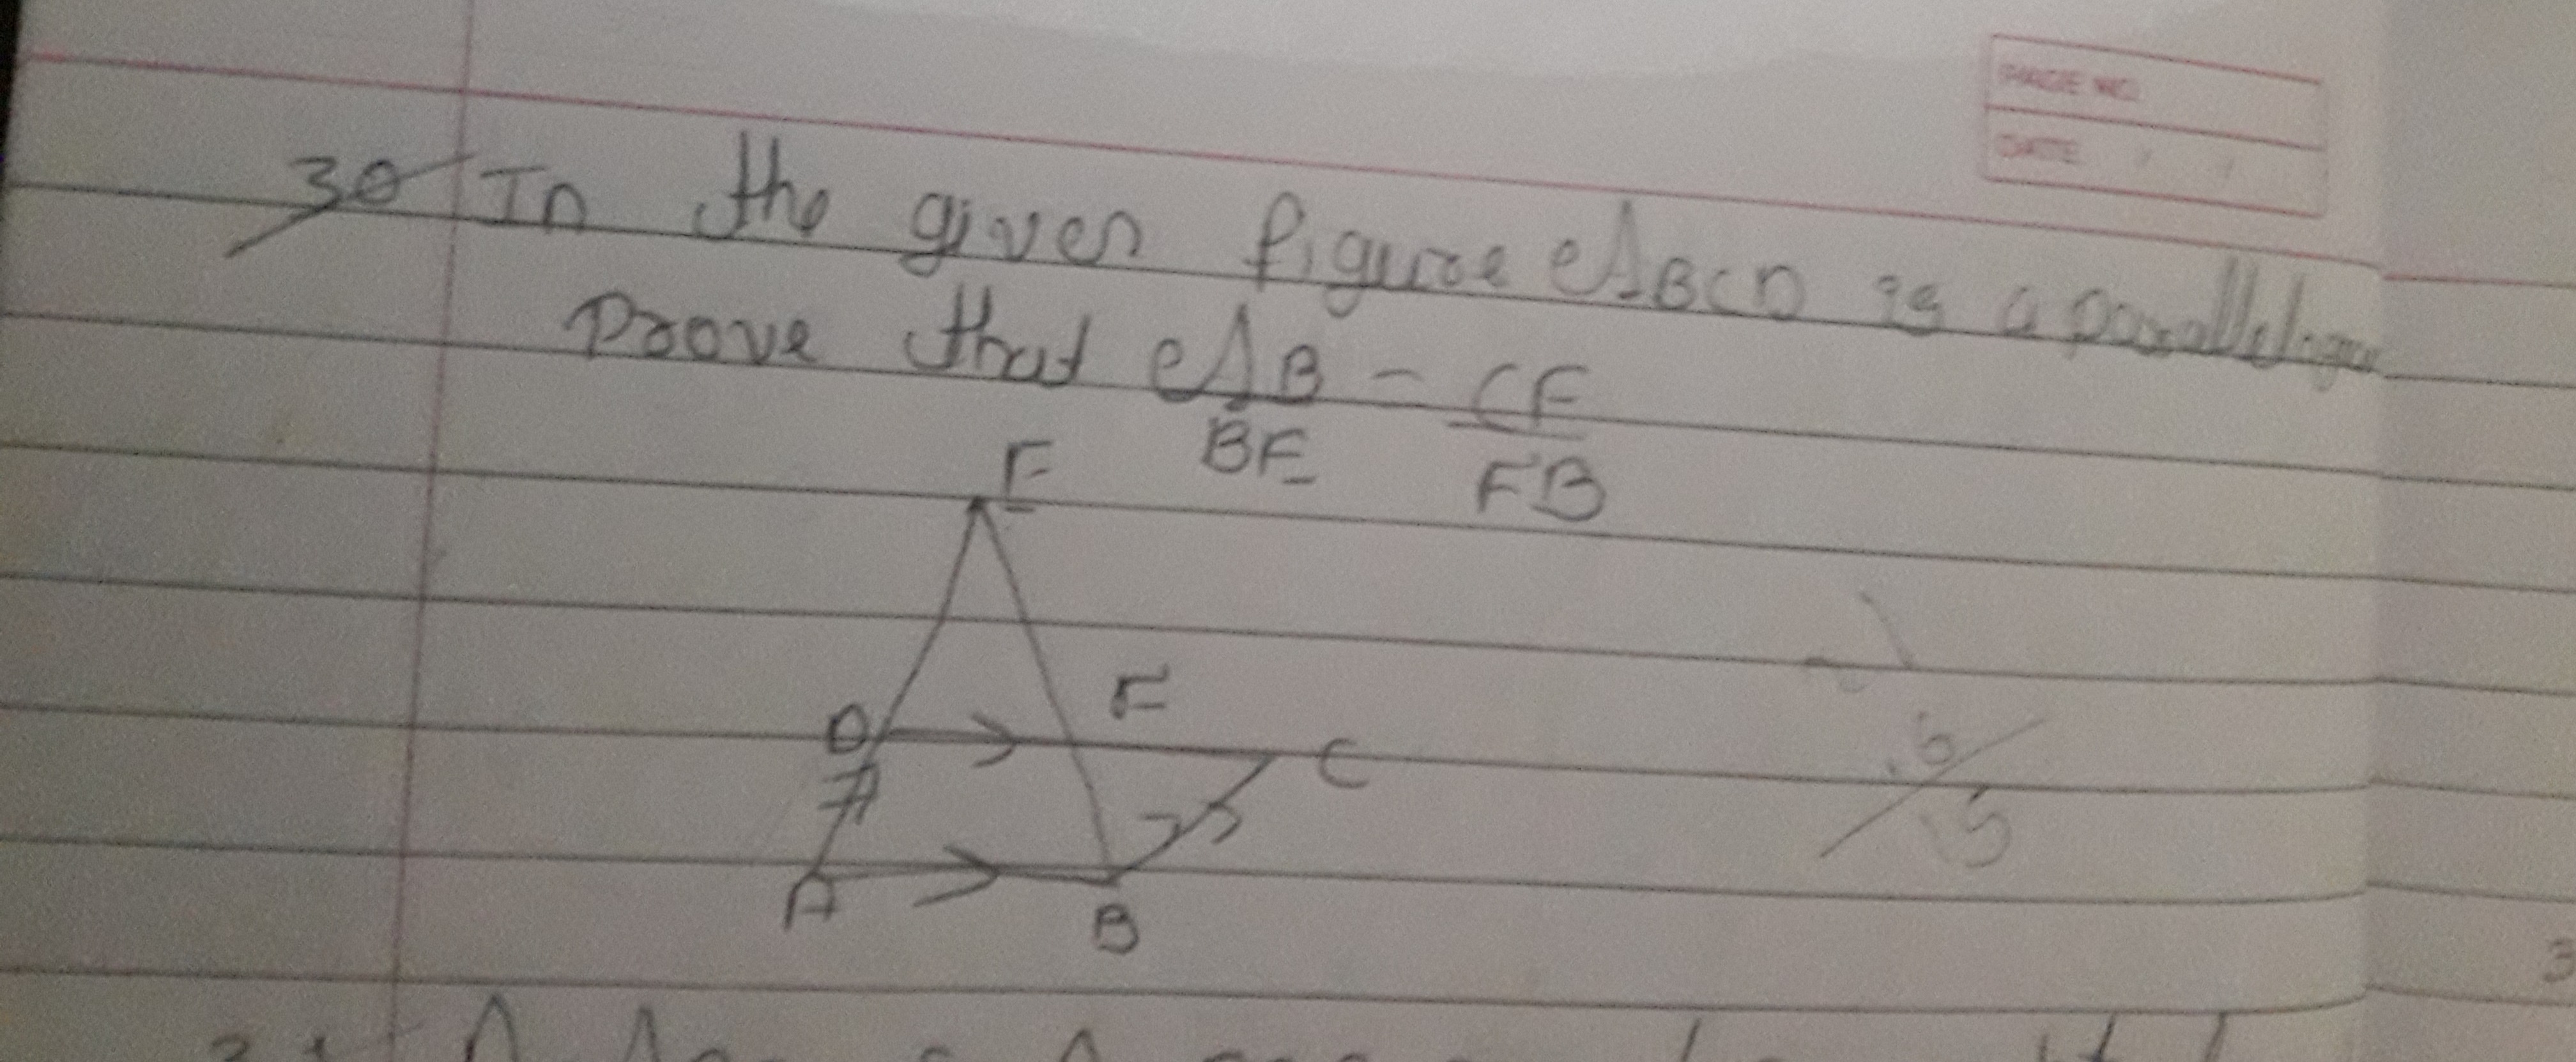 PAGE NO.
DATE / /
30 In the given figure ABCD is a parallelogra
Prove that AB = CF
BE FB
E
F
D
C
A
B
6
15
3